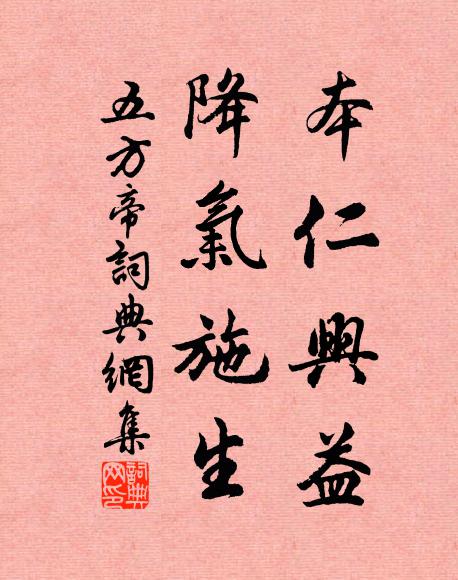 本仁興益
降氣施生
五方帝詞典網集
詞典网印